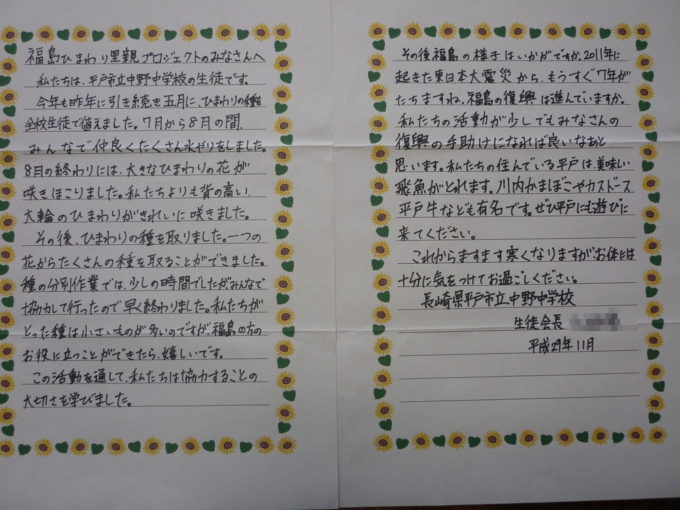 福島ひまわり里親プロジェクトのみなさんへ
私たちは、平戸市立中野中学校の生徒です。
今年も昨年に引き続き五月に、ひまわりの種を
全校生徒で植えました。7月から8月の間、
みんなで仲良くたくさん水やりをしました。
8月の終わりには、大きなひまわりの花が
咲きほこりました。私たちよりも背の高い
大輪のひまわりがきれいに咲きました。
その後、ひまわりの種を取りました。一つの
花からたくさんの種を取ることができました。
種の分別作業では、少しの時間でしたがみんなで
協力して行ったので早く終わりました。私たちが
とった種は小さいものが多いのですが、福島の方の
お役に立つことができたら、嬉しいです。
この活動を通して、私たちは協力することの
大切さを学びました。
その後福島の様子はいかがですか。2011年に
起きた東日本大震災から、もうすぐ7年が
たちますね。福島の復興は進んでいますか。
私たちの活動が少しでもみなさんの
復興の手助けになれば良いなあと
思います。私たちの住んでいる平戸は美味しい
飛魚がとれます。川内かまぼこやカスドース
平戸牛なども有名です。ぜひ平戸にも遊びに
来てください。
これからますます寒くなりますがお体には
十分に気をつけてお過ごしください。
長崎県平戸市立中野中学校
生徒会長
平成29年11月